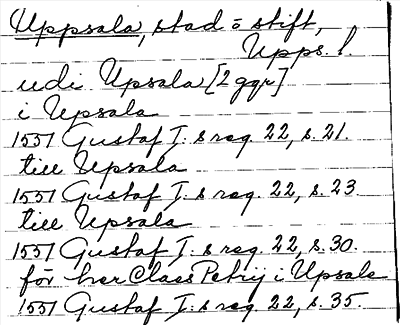 Uppsala, stad o stift,
Upps. l.
udi Upsala [2 ggr]
i Upsala
1551 Gustaf I:s reg. 22, s. 21.
till Upsala
1551 Gustaf I:s reg. 22, s. 23
till Upsala
1551 Gustaf I:s reg. 22, s. 30.
för her Class Petrij i Upsala
1551 Gustaf I:s reg. 22, s. 35.